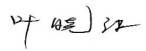 叶晓江